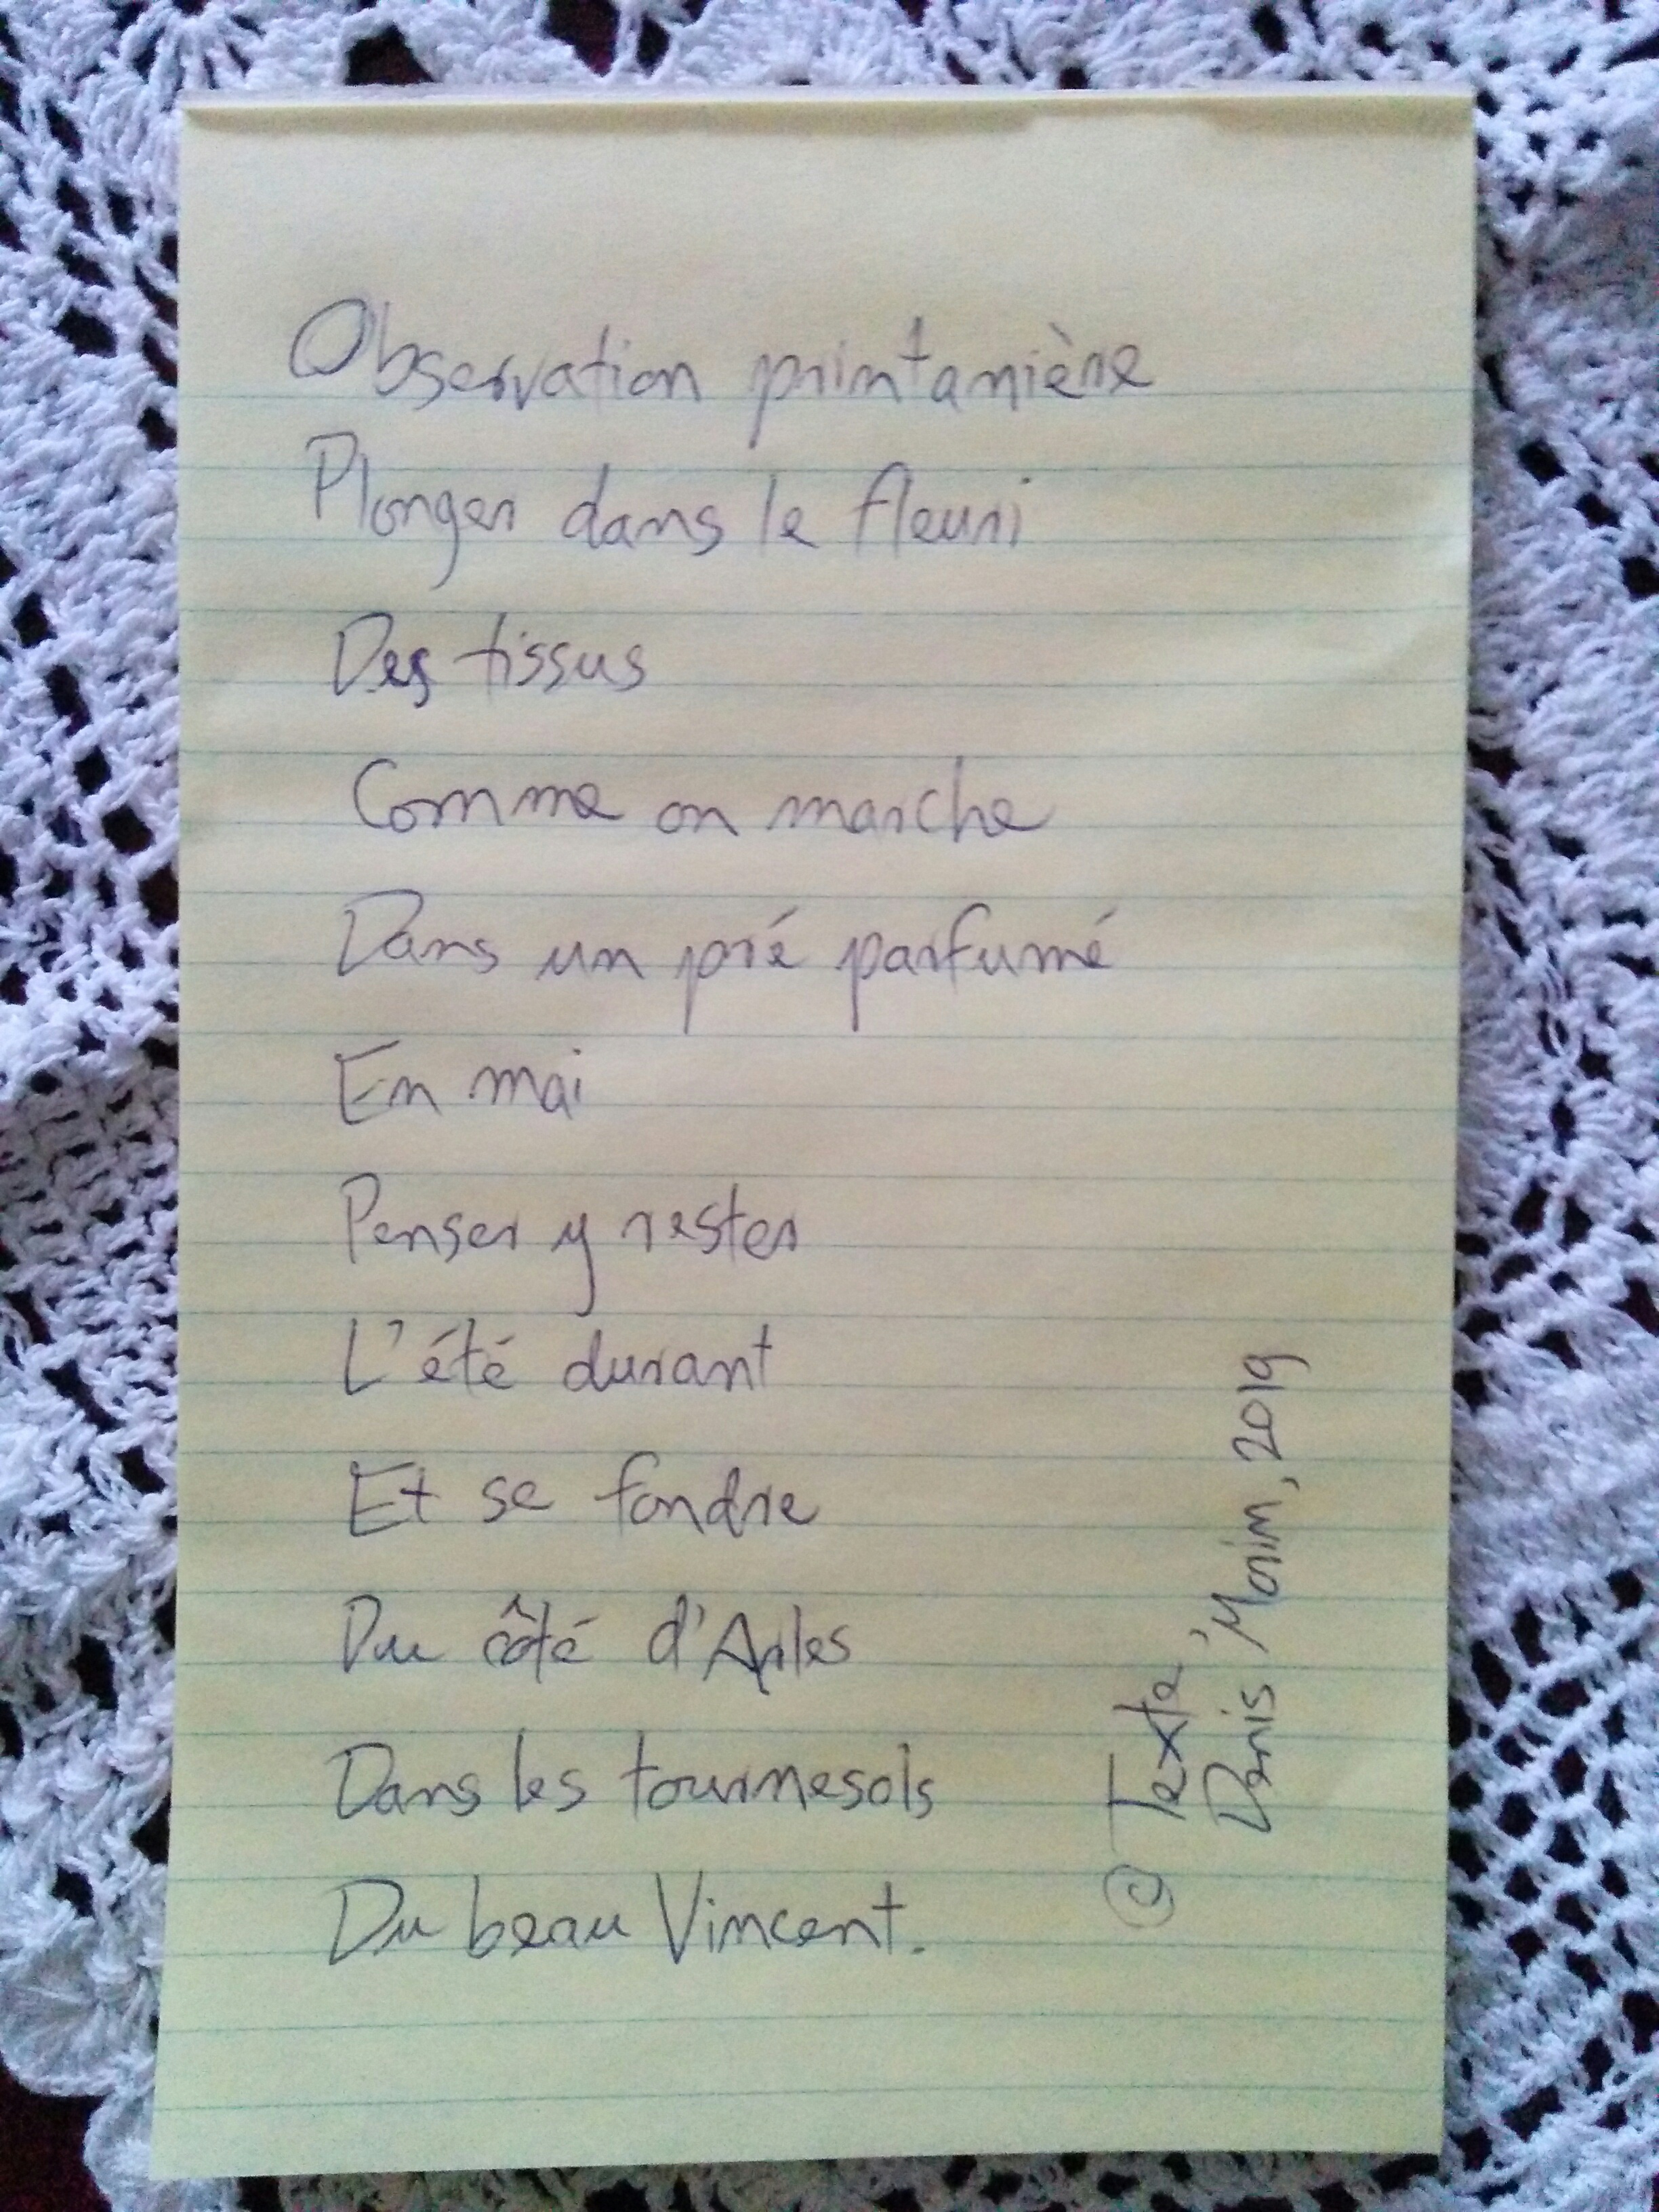 Observation printanière
Plonger dans le fleuri
Des tissus
Comme on marche
Dans un pré parfumé
En mai
Penser y rester
L'été durant
Et se fondre
Du côté d'Arles
Dans les tournesols
Du beau Vincent.
© Texte,
Denis Morin, 2019